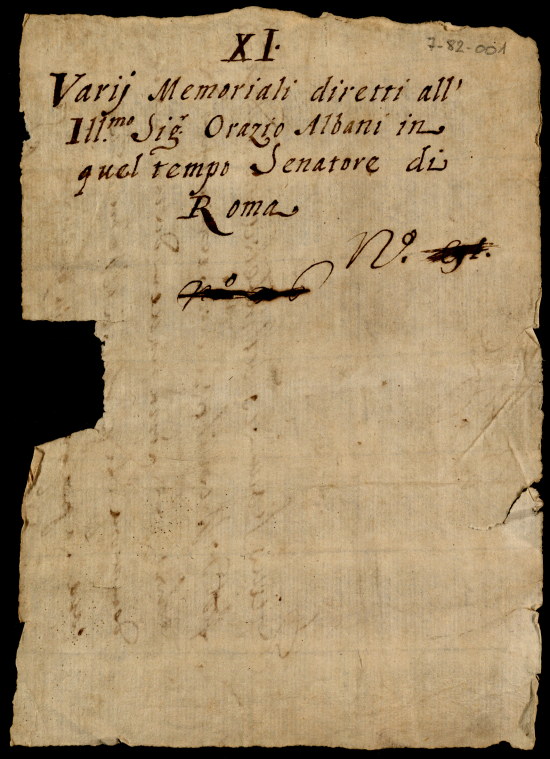 XI.
7-82-001
Varij Memoriali diretti all'
Ill.mo Sig.r Orazio Albani in
quel tempo Senatore di
Roma
N.o
n.o